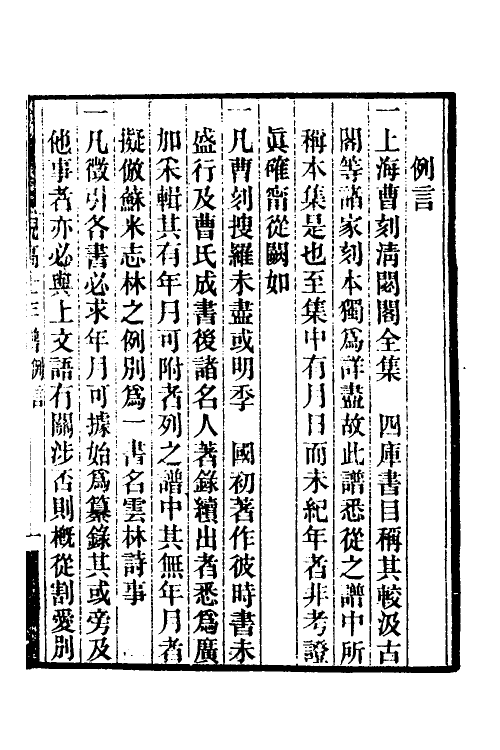 例言
一上海曹刻淸閟閣全集　四庫書目稱其較汲古
閣等諸家刻本獨爲詳盡故此譜悉從之譜中所
稱本集是也至集中有月日而未紀年者非考證
眞確甯從闕如
一凡曹刻搜羅未盡或明季　國初著作彼時書未
盛行及曹氏成書後諸名人著錄續出者悉爲廣
加采輯其有年月可附者列之譜中其無年月者
擬倣蘇米志林之例別爲一書名雲林詩事
一凡徵引各書必求年月可據始爲纂錄其或旁及
他事者亦必與上文語有關涉否則槪從割愛別
例言
一